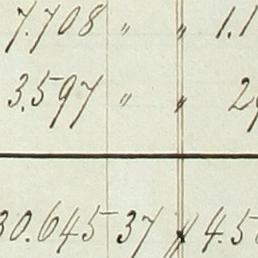 7.708 " " 1.1
3.597 " " 29
30.645 37 4.5